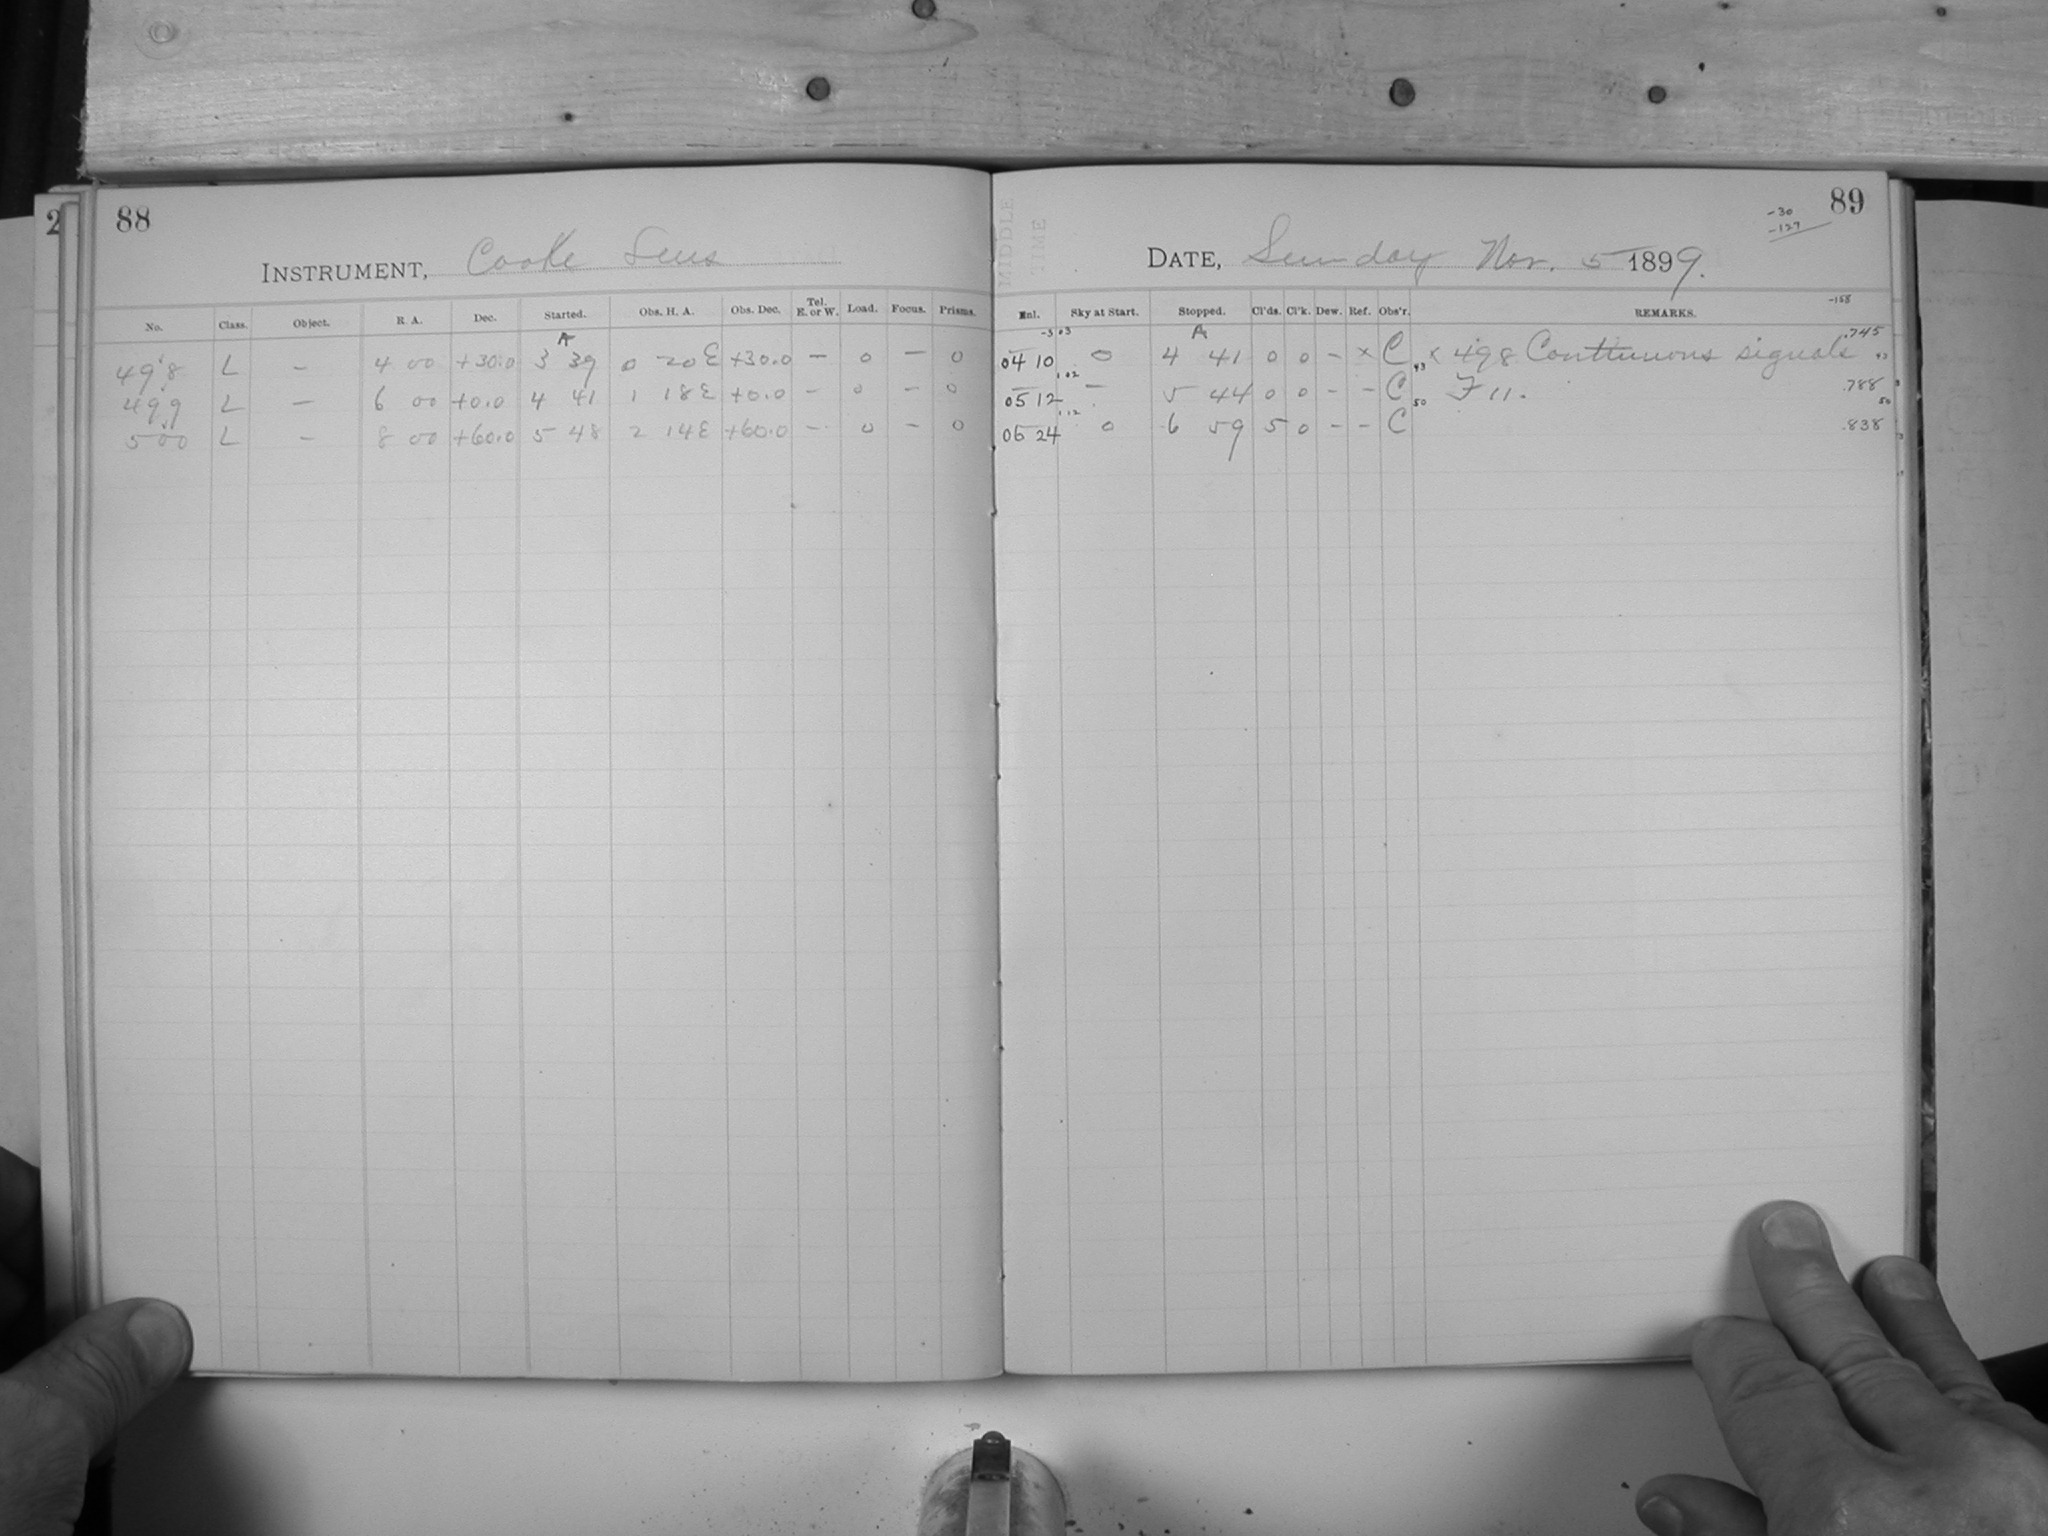 2
88
INSTRUMENT, Cooke Lens
No. Class. Object. R. A. Dec. Started. Obs. H. A. Obs. Dec. Tel. E. or W. Load. Focus. Prisms.
A
498 L – 4 00 +30.0 3 39 0 20E +30.0 – 0 – 0
499 L – 6 00 +0.0 4 41 1 18E +0.0 – 0 – 0
500 L – 8 00 +60.0 5 48 2 14E +60.0 – 0 – 0
MIDDLE
TIME
89
-30
-127
DATE, Sunday Nov. 5 1899.
-158
Sky at Start. Stopped. Cl'ds. Cl'k. Dew. Ref. Obs'r. REMARKS.
A .745
04 10 0 4 41 0 0 – × C × 498 Continuous signals 43
43
1.02
05 12 – 5 44 0 0 – – C F 11. .788
50 50
1.12
06 24 0 6 59 5 0 – – C .838